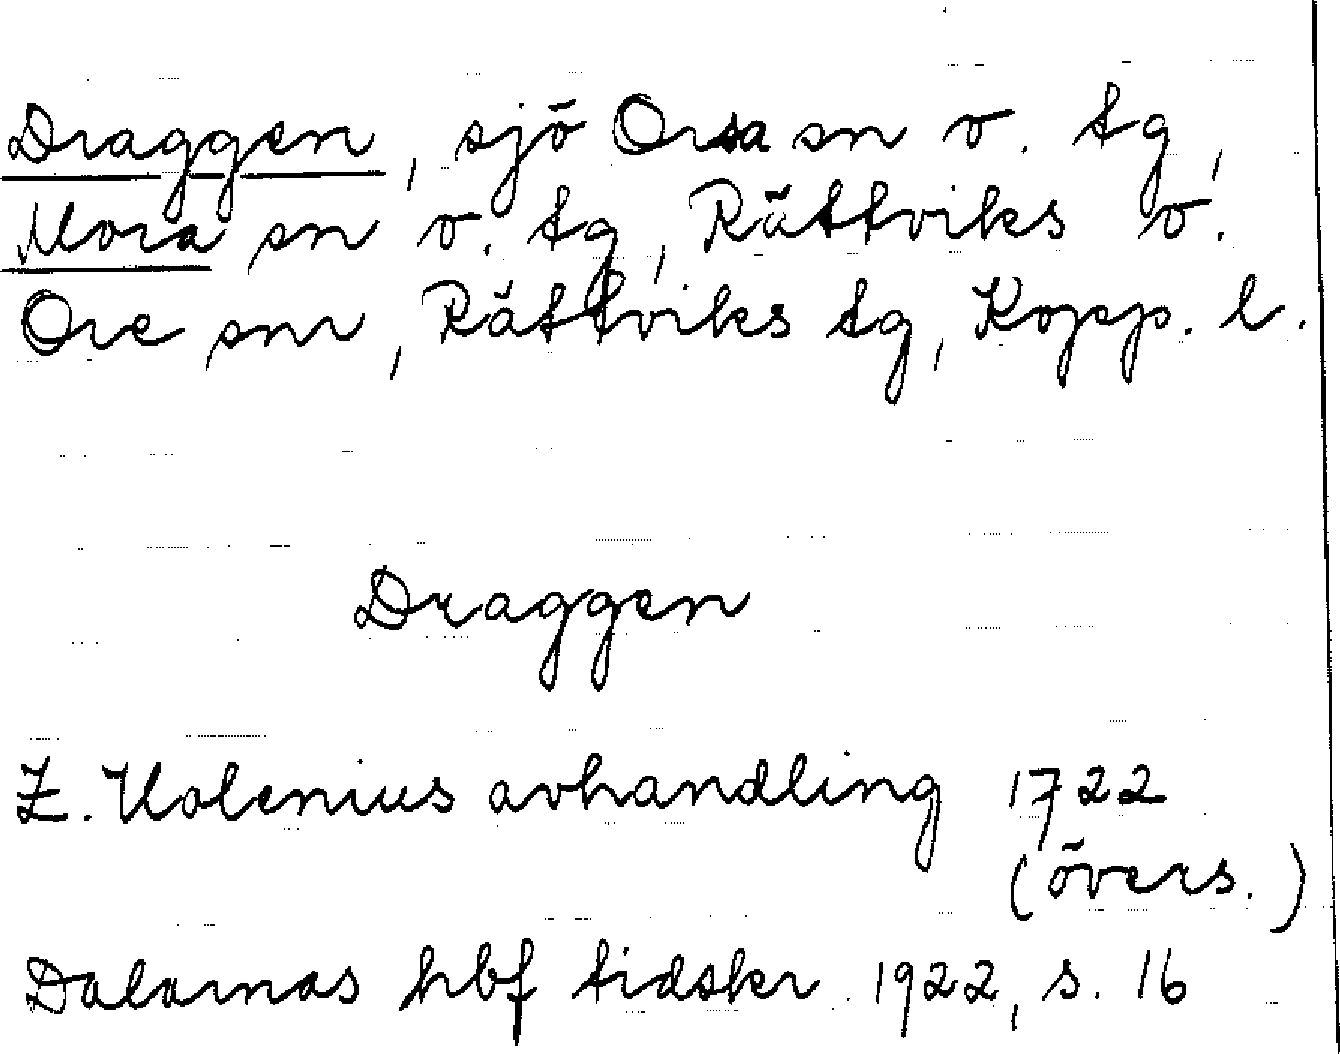 Draggen, sjö Orsa sn o. tg,
Mora sn o. tg, Rättviks o.
Ore snr, Rättviks tg, Kopp. l.
Draggen
Z. Holenius avhandling 1722
(övers.)
Dalarnas hbf tidskr. 1922, s. 16